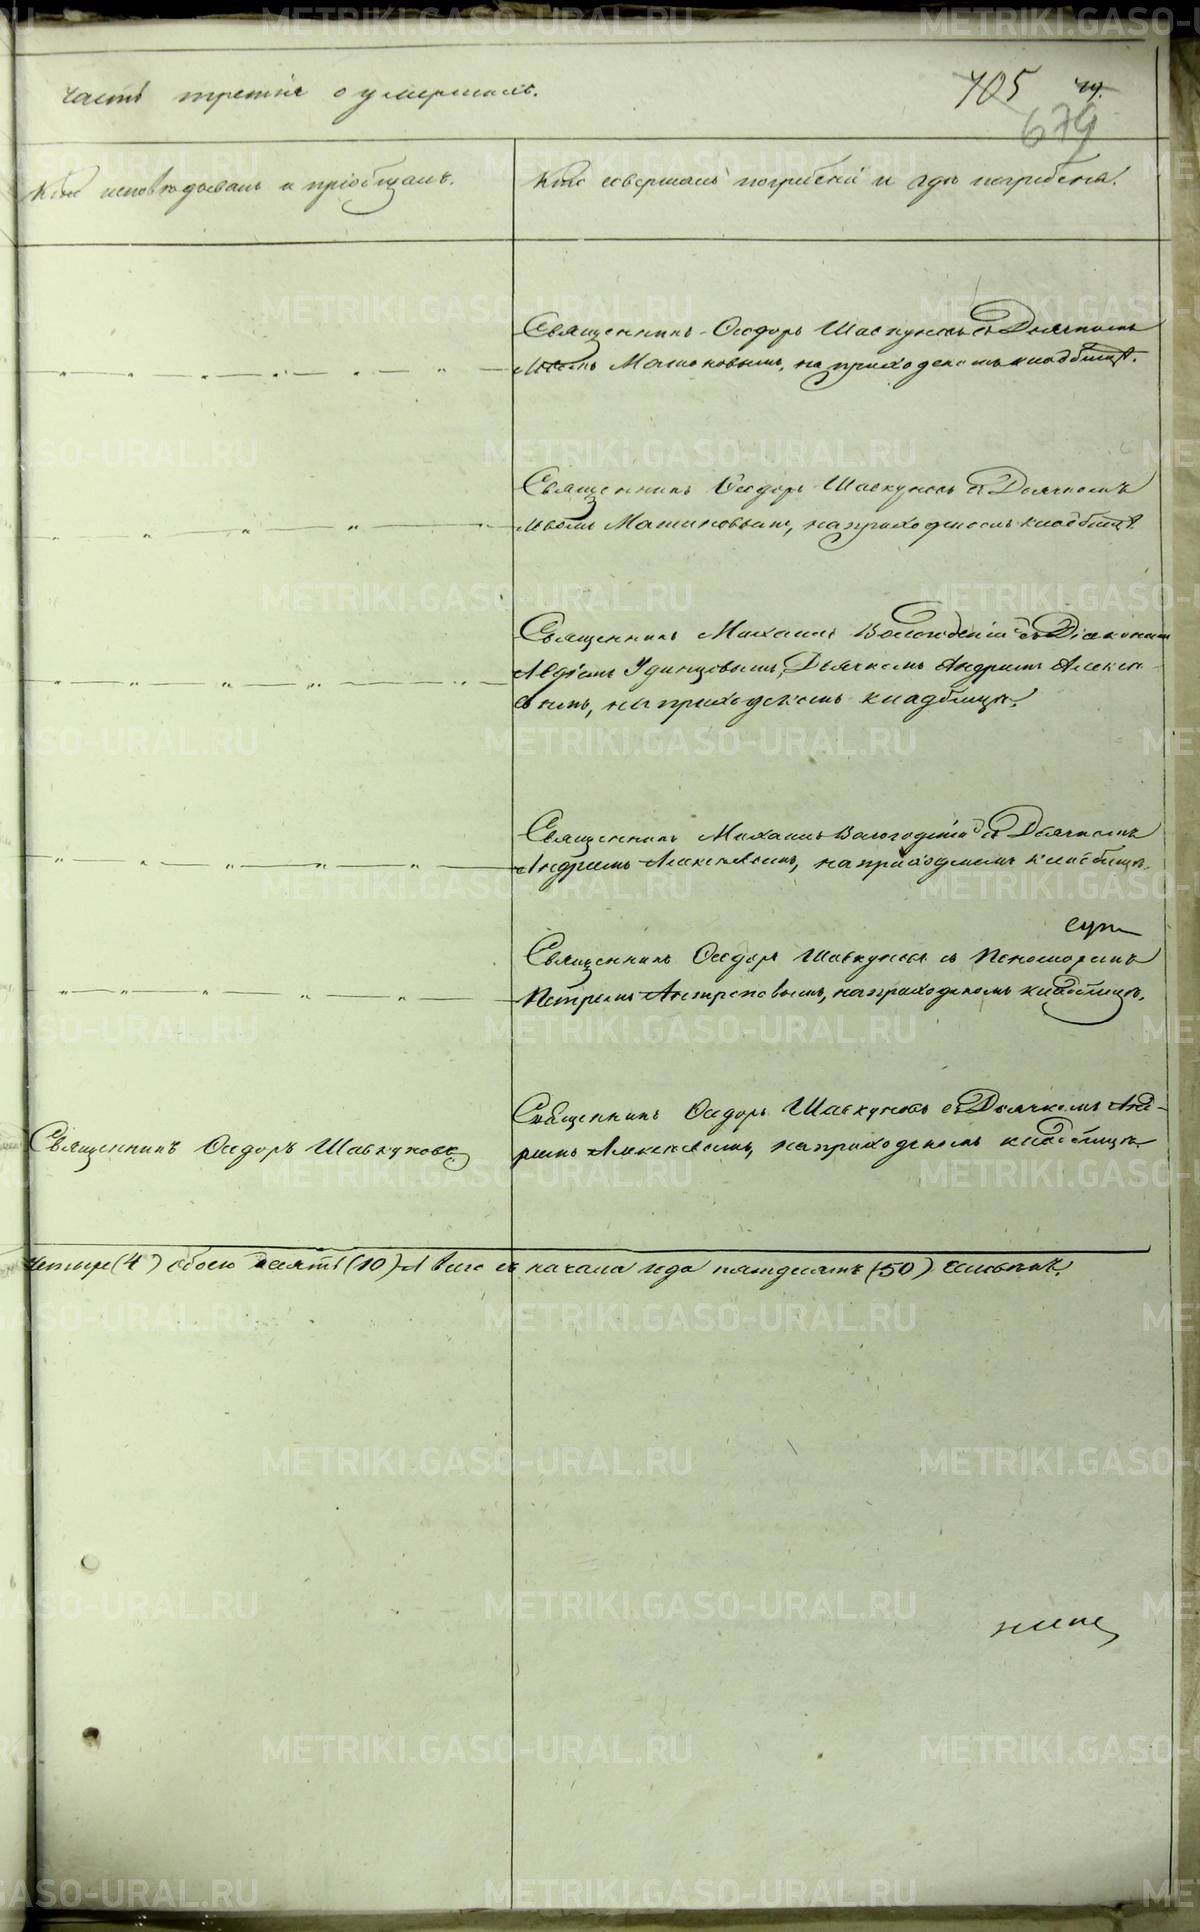 часть третія о умершихъ.
705
679
Кто исповѣдывалъ и пріобщалъ.
Кто совершалъ погребеніе и гдѣ погребены.
Священникъ Ѳедоръ Шавкуновъ съ Дьячкомъ
на приходскомъ кладбищѣ.
Священникъ Ѳедоръ Шавкуновъ съ Дьячкомъ
на приходскомъ кладбищѣ.
Священникъ Михаилъ съ Діакономъ
Авдіемъ Удинцовымъ, Дьячкомъ Андреемъ Алексѣ-
евымъ, на приходскомъ кладбищѣ.
Священникъ Михаилъ Вологодскій съ Дьячкомъ
Андреемъ Алексѣевымъ, на приходскомъ кладбищѣ.
Священникъ Ѳедоръ Шавкуновъ съ Пономаремъ
Петромъ на приходскомъ кладбищѣ.
Священникъ Ѳедоръ Шавкуновъ
Священникъ Ѳедоръ Шавкуновъ съ Дьячкомъ Анд-
реемъ Алексѣевымъ, на приходскомъ кладбищѣ
четыре (4) обоего десять (10) А всего съ начала года пятдесятъ (50) человѣкъ.
METRIKI.GASO-URAL.RU